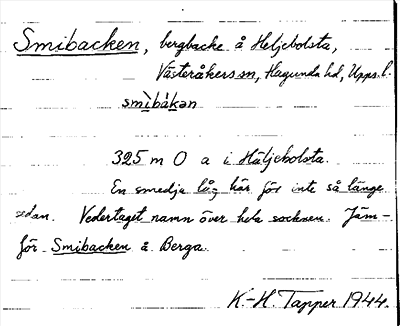 Smibacken, bergbacke å Heljebolsta,
Västeråkers sn, Hagunda hd, Upps. l.
smìbákən
325 m O a i Häljebolsta.
En smedja låg här för inte så länge
sedan. Vedertaget namn över hela socknen. Jäm-
för Smibacken å Berga.
K-H. Tapper 1944.